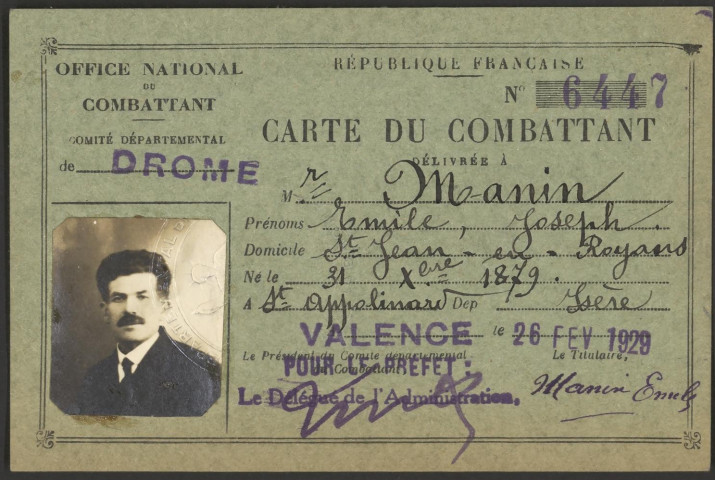 OFFICE NATIONAL
DU
COMBATTANT
COMITÉ DÉPARTEMENTAL
de DROME
RÉPUBLIQUE FRANÇAISE
N° 6447
CARTE DU COMBATTANT
DÉLIVRÉE À
Mr Manin
Prénoms Emile, Joseph.
Domicile St Jean-en-Royans
Né le 31 Xbre 1879.
A St Appolinard Dep Isère
VALENCE le 26 FEV 1929
Le Président du Comité départemental
du Combattant
Le Titulaire,
POUR LE PREFET :
Le Délégué de l'Administration,
Manin Emile